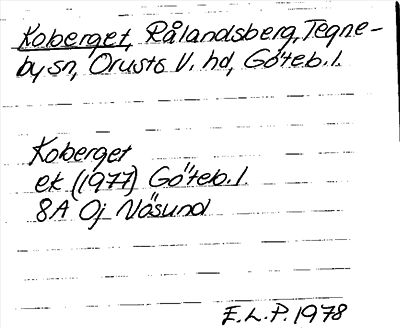 Koberget, Rålandsberg, Tegne-
by sn, Orusts V. hd, Göteb. l.
Koberget
ek (1977) Göteb. l.
8A Oj Näsund
E. L. P. 1978